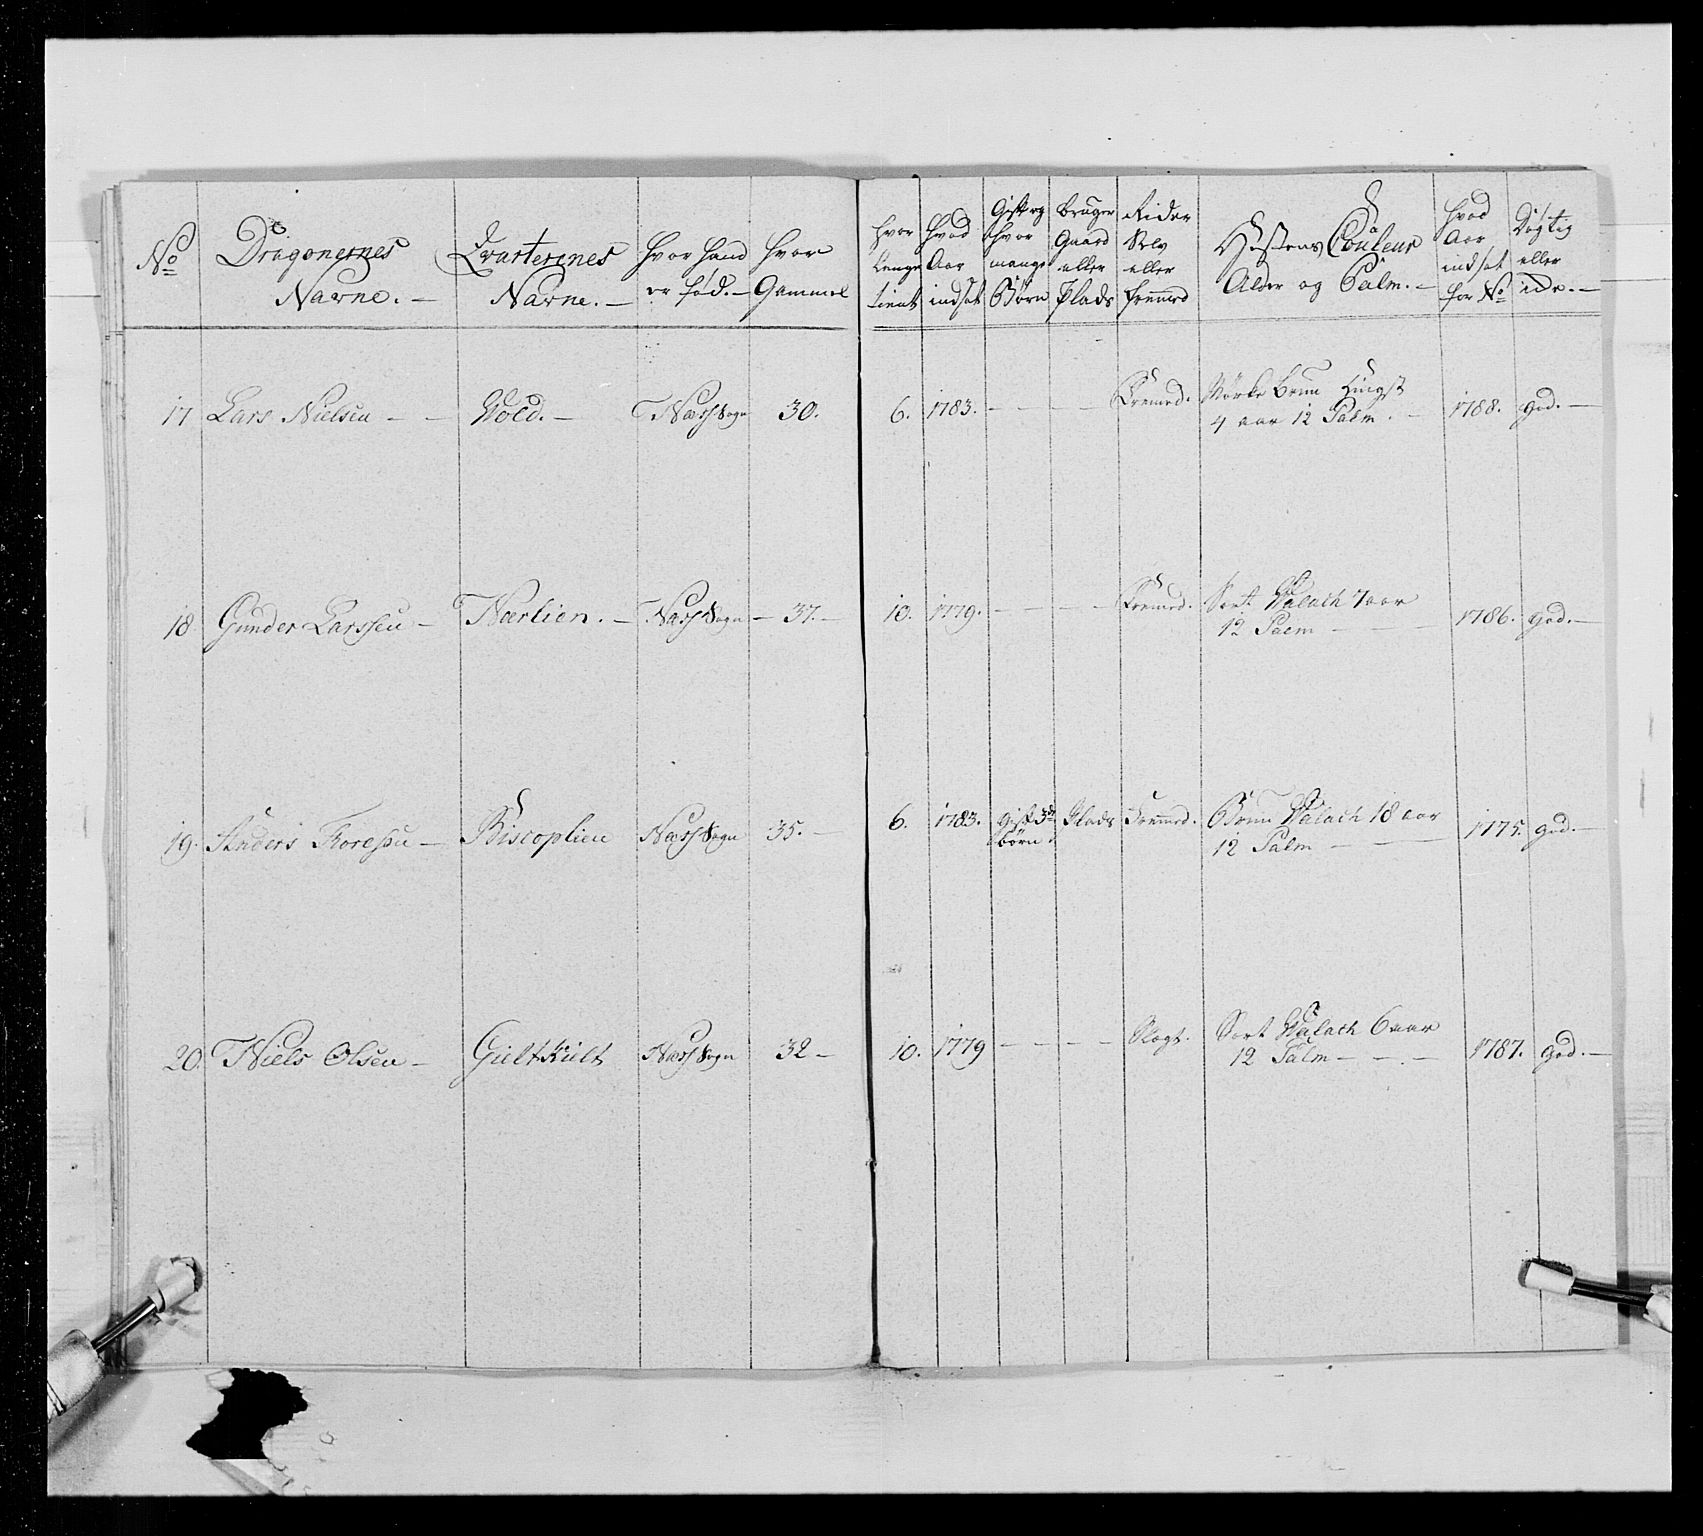 No
Dragonernes
Navne. —
Qvarterenes
Navne. —
hvor hand
er fød. —
hvor
Gammel
hvor
lenge
tient
hvad
Aar
indsat
Gift og
hvor
mange
Børn
bruger
Gaard
eller
Plads
Rider
Selv
eller
fremmed
Hestens Couleur
Alder og Palm. —
hvad
Aar
indsat
for No
Døgtig
eller
ide. —
17 Lars Nielsen — — Vold. — Næss Sogn 30. 6. 1783. — — — Fremed. Mørke Brun Hingst
4 aar 12 Palm — 1788. god. —
18 Gunder Larssen — Nærlien. — Næss Sogn — 37. — 10. 1779. — — — Fremed. Sort Valach 7 aar
12 Palm — — 1786. god. —
19. Anders Toresen — Biscoplien Næss Sogn 35. — 6. 1783. Gift 3de
børn. Plads Fremmed. Brun Valach 18 aar
12 Palm — — 1775. god. —
20. Niels Olsen — Gieltkült Næss Sogn 32 — 10. 1779 — — — — Slogt. Sort Valach 6 aar
12 Palm — — — 1787. god. —